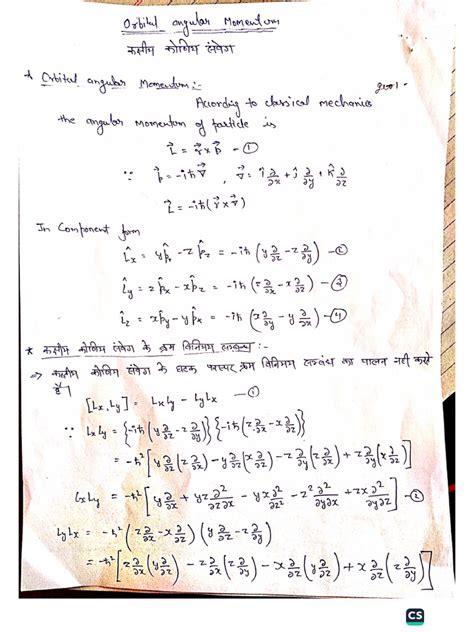 Orbital angular Momentum
कक्षीय कोणीय संवेग
* Orbital angular Momentum:-
According to classical mechanics
the angular momentum of particle is
L⃗ = r⃗ × p⃗ — ①
∵ p⃗ = -iħ∇⃗, ∇⃗ = î ∂/∂x + ĵ ∂/∂y + k̂ ∂/∂z
L⃗ = -iħ(r⃗ × ∇⃗)
In Component form
L̂x = yp̂z - zp̂z = -iħ (y ∂/∂z - z ∂/∂y) — ②
L̂y = zp̂x - xp̂z = -iħ (z ∂/∂x - x ∂/∂z) — ③
L̂z = xp̂y - yp̂x = -iħ (x ∂/∂y - y ∂/∂x) — ④
* कक्षीय कोणीय संवेग के क्रम विनिमय सम्बन्ध :-
⇒ कक्षीय कोणीय संवेग के घटक परस्पर क्रम विनिमय सम्बंध का पालन नही करते
है।
[Lx, Ly] = LxLy - LyLx — ①
∵ LxLy = {-iħ(y ∂/∂z - z ∂/∂y)}{-iħ(z ∂/∂x - x ∂/∂z)}
= -ħ² [y ∂/∂z (z ∂/∂x) - y ∂/∂z (x ∂/∂z) - z ∂/∂y (z ∂/∂x) + z ∂/∂y (x ∂/∂z)]
LxLy = -ħ² [y ∂/∂x + yz ∂²/∂z∂x - yx ∂²/∂z² - z² ∂²/∂y∂x + zx ∂²/∂y∂z] — ②
LyLx = -ħ² (z ∂/∂x - x ∂/∂z) (y ∂/∂z - z ∂/∂y)
= -ħ² [z ∂/∂x (y ∂/∂z) - z ∂/∂x (z ∂/∂y) - x ∂/∂z (y ∂/∂z) + x ∂/∂z (z ∂/∂y)]
CS